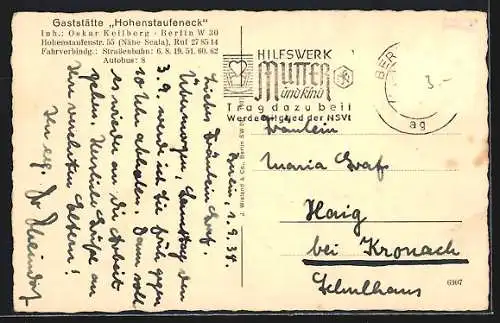 Gaststätte „Hohenstaufeneck"
Inh.: Oskar Keilberg - Berlin W 30
Hohenstaufenstr. 55 (Nähe Scala), Ruf 27 85 14
Fahrverbindg.: Straßenbahn: 6. 8. 19. 51. 60. 62
Autobus: 8
HILFSWERK
Mutter
und Kind
Trag dazu bei!
Werde Mitglied der NSV!
BER
ag
3.-
Berlin, 1.9.34.
Liebes Fräulein Graf.
Übermorgen, Samstag den
3.9. werde ich Sie früh gegen
10 Uhr abholen. Dann soll
es wieder an die Arbeit
gehen. Herzliche Grüße an
Ihre verehrten Eltern!
Ihr erg.
J. Wieland & Co., Berlin SW
Fräulein
Maria Graf
Haig
bei Kronach
Schulhaus
6307